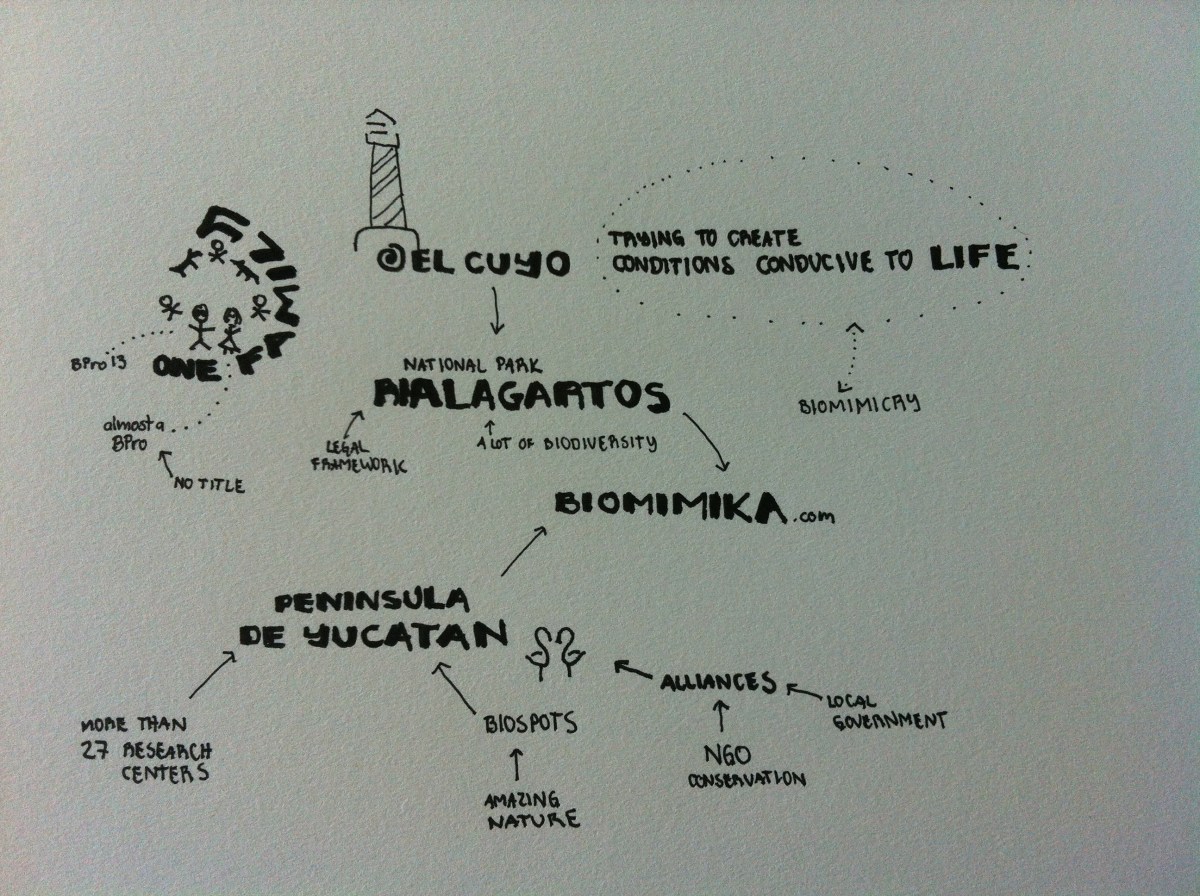 ONE FAMILY
BPro'13
almost a
BPro
NO TITLE
@EL CUYO
TRYING TO CREATE
CONDITIONS CONDUCIVE TO LIFE
BIOMIMICRY
NATIONAL PARK
RIALAGARTOS
LEGAL
FRAMEWORK
A LOT OF BIODIVERSITY
BIOMIMIKA.com
PENINSULA
DE YUCATAN
MORE THAN
27 RESEARCH
CENTERS
BIOSPOTS
AMAZING
NATURE
ALLIANCES
LOCAL
GOVERNMENT
NGO
CONSERVATION